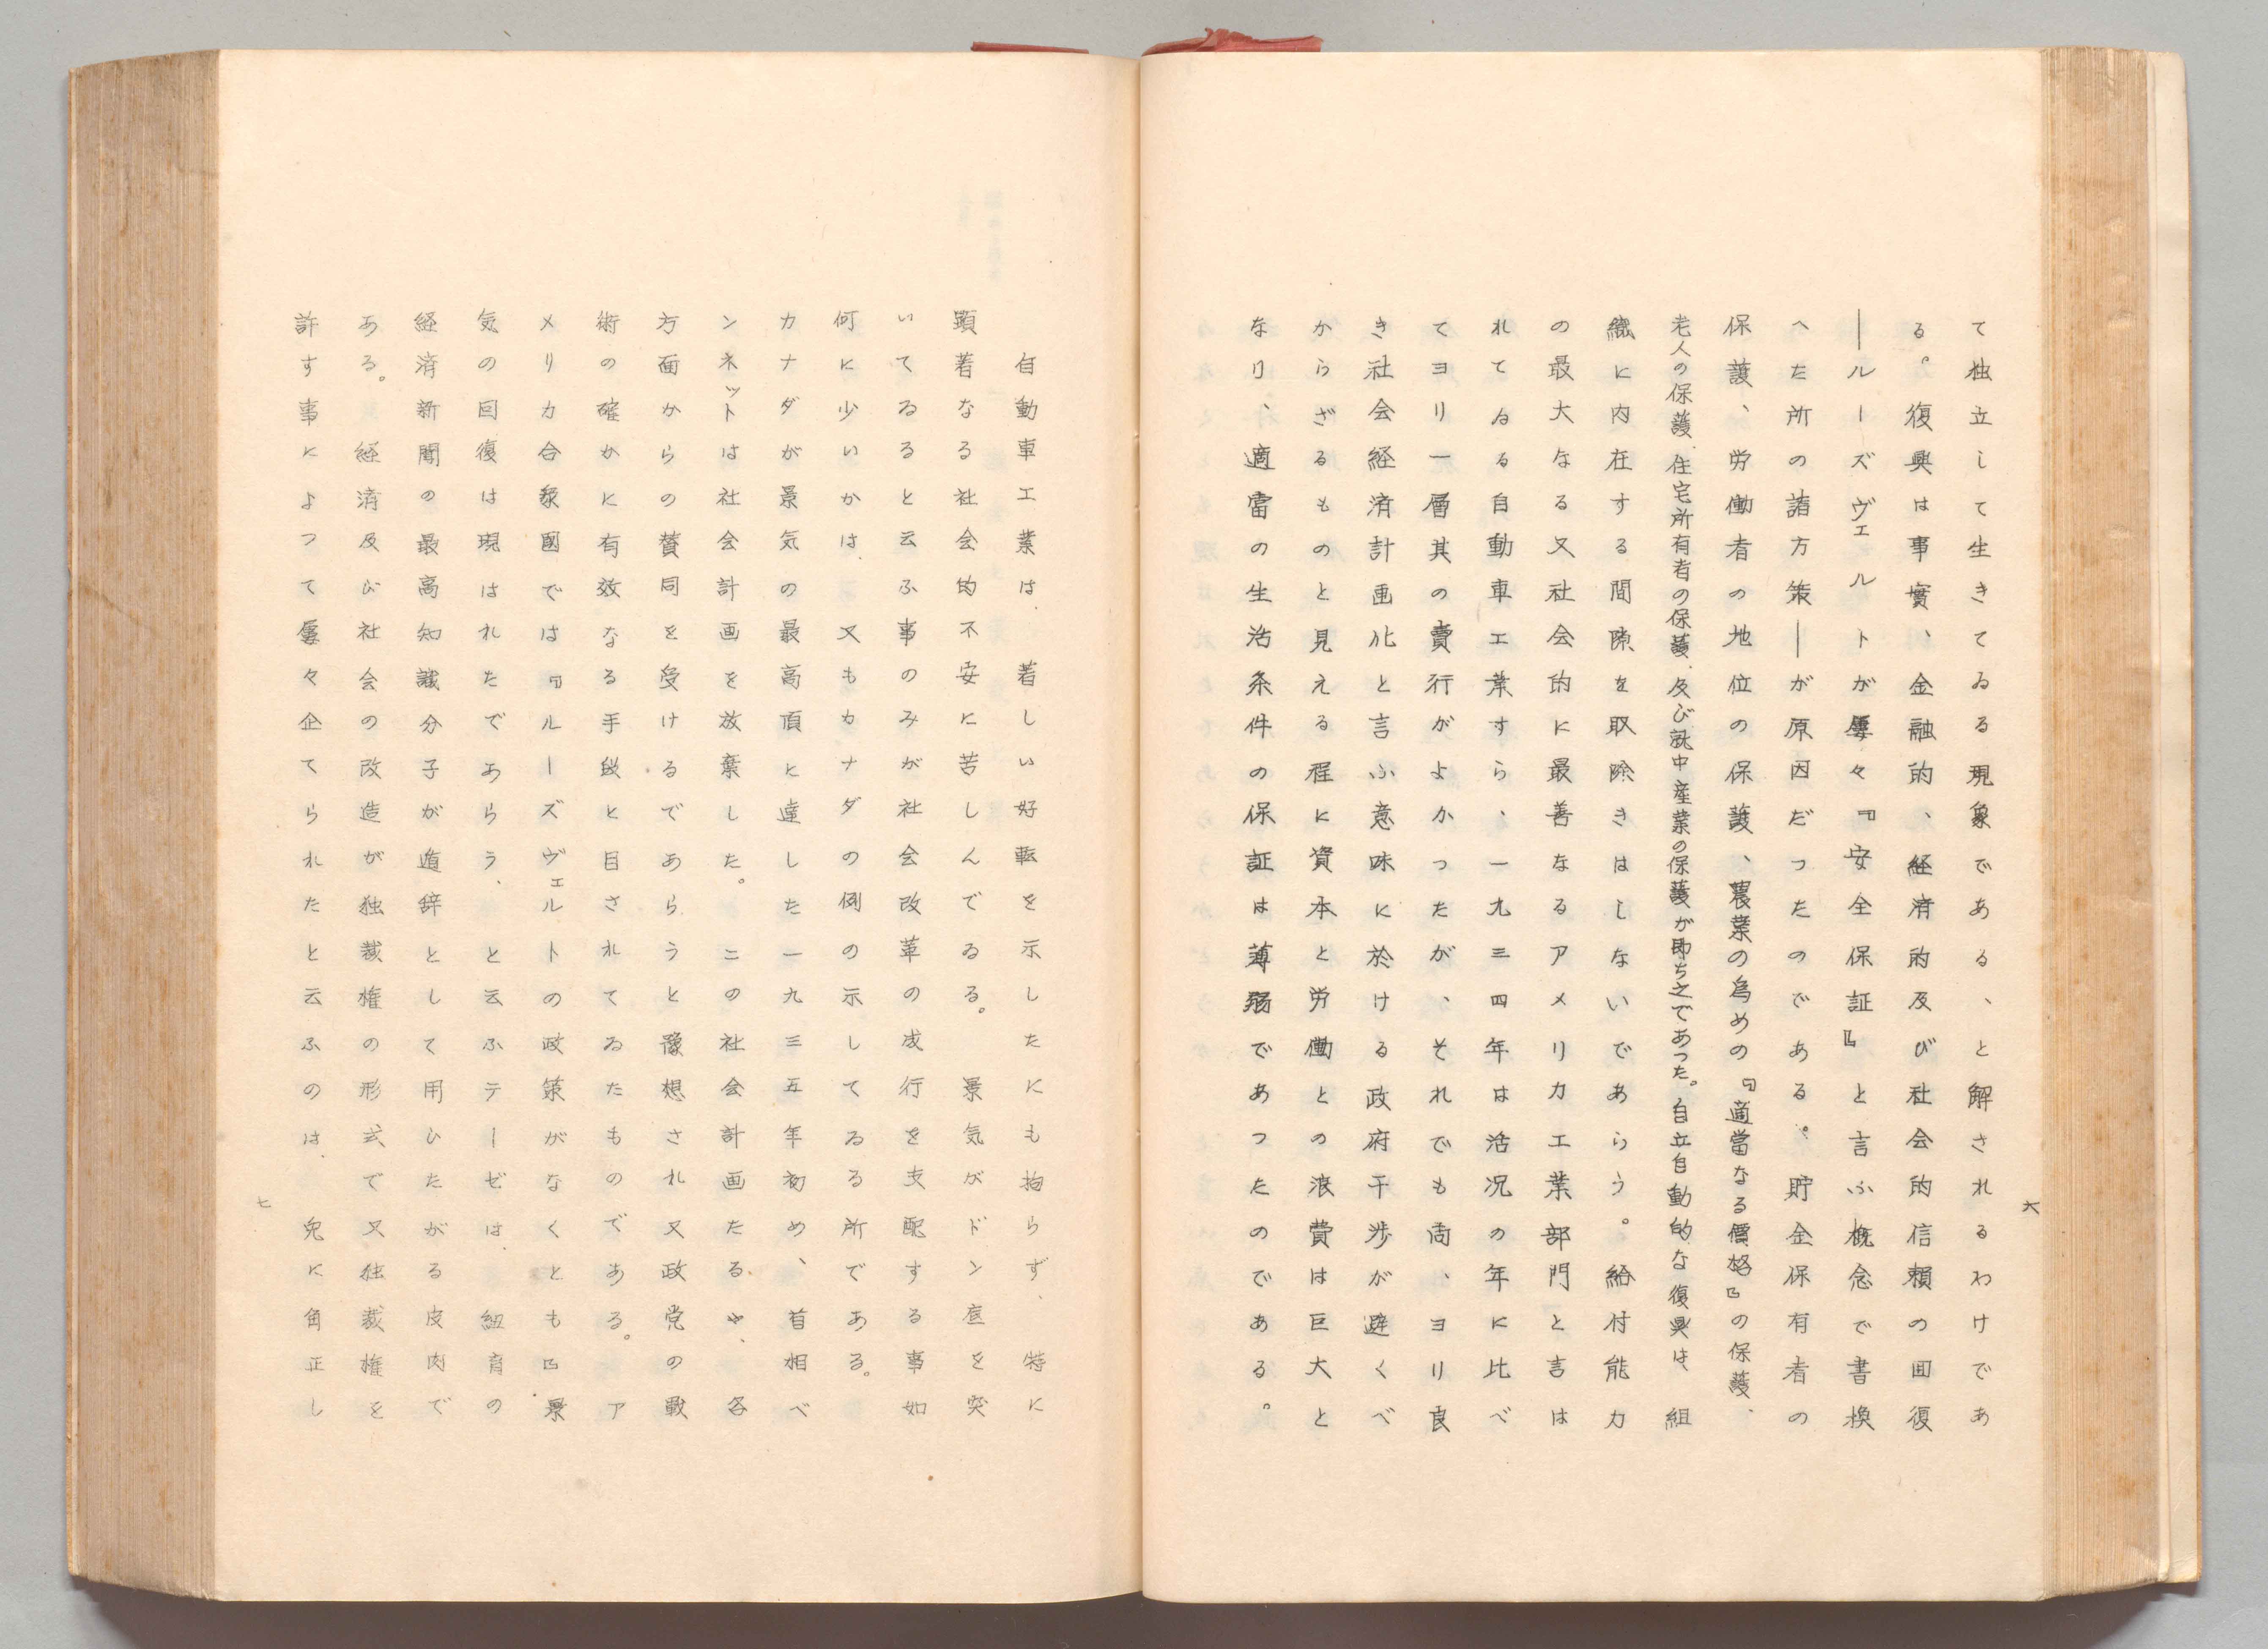 六
て独立して生きてゐる現象である、と解されるわけであ
る。復興は事實、金融的、経済的及び社会的信頼の回復
―ルーズヴェルトが屢々『安全保証』と言ふ概念で書換
へた所の諸方策―が原因だつたのである。貯金保有者の
保護、労働者の地位の保護、農業の為めの『適當なる價格』の保護、
老人の保護、住宅所有者の保護、及び就中産業の保護が即ち之であつた。自立自動的な復興は、組
織に内在する間隙を取除きはしないであらう。給付能力
の最大なる又社会的に最善なるアメリカ工業部門と言は
れてゐる自動車工業すら、一九三四年は活況の年に比べ
てヨリ一層其の賣行がよかつたが、それでも尚、ヨリ良
き社会経済計画化と言ふ意味に於ける政府干渉が避くべ
からざるものと見える程に資本と労働との浪費は巨大と
なり、適當の生活条件の保証は薄弱であつたのである。
自動車工業は、著しい好転を示したにも拘らず、特に
顕著なる社会的不安に苦しんでゐる。景気がドン底を突
いてゐると云ふ事のみが社会改革の成行を支配する事如
何に少いかは、又もカナダの例の示してゐる所である。
カナダが景気の最高頂に達した一九三五年初め、首相ベ
ンネットは社会計画を放棄した。この社会計画たるや、各
方面からの賛同を受けるであらうと豫想され又政党の戦
術の確かに有效なる手段と目されてゐたものである。ア
メリカ合衆國では『ルーズヴェルトの政策がなくとも』景
気の回復は現はれたであらう、と云ふテーゼは、紐育の
経済新聞の最高知識分子が遁辞として用ひたがる皮肉で
ある。経済及び社会の改造が独裁権の形式で又独裁権を
許す事によつて屢々企てられたと云ふのは、兎に角正し
七